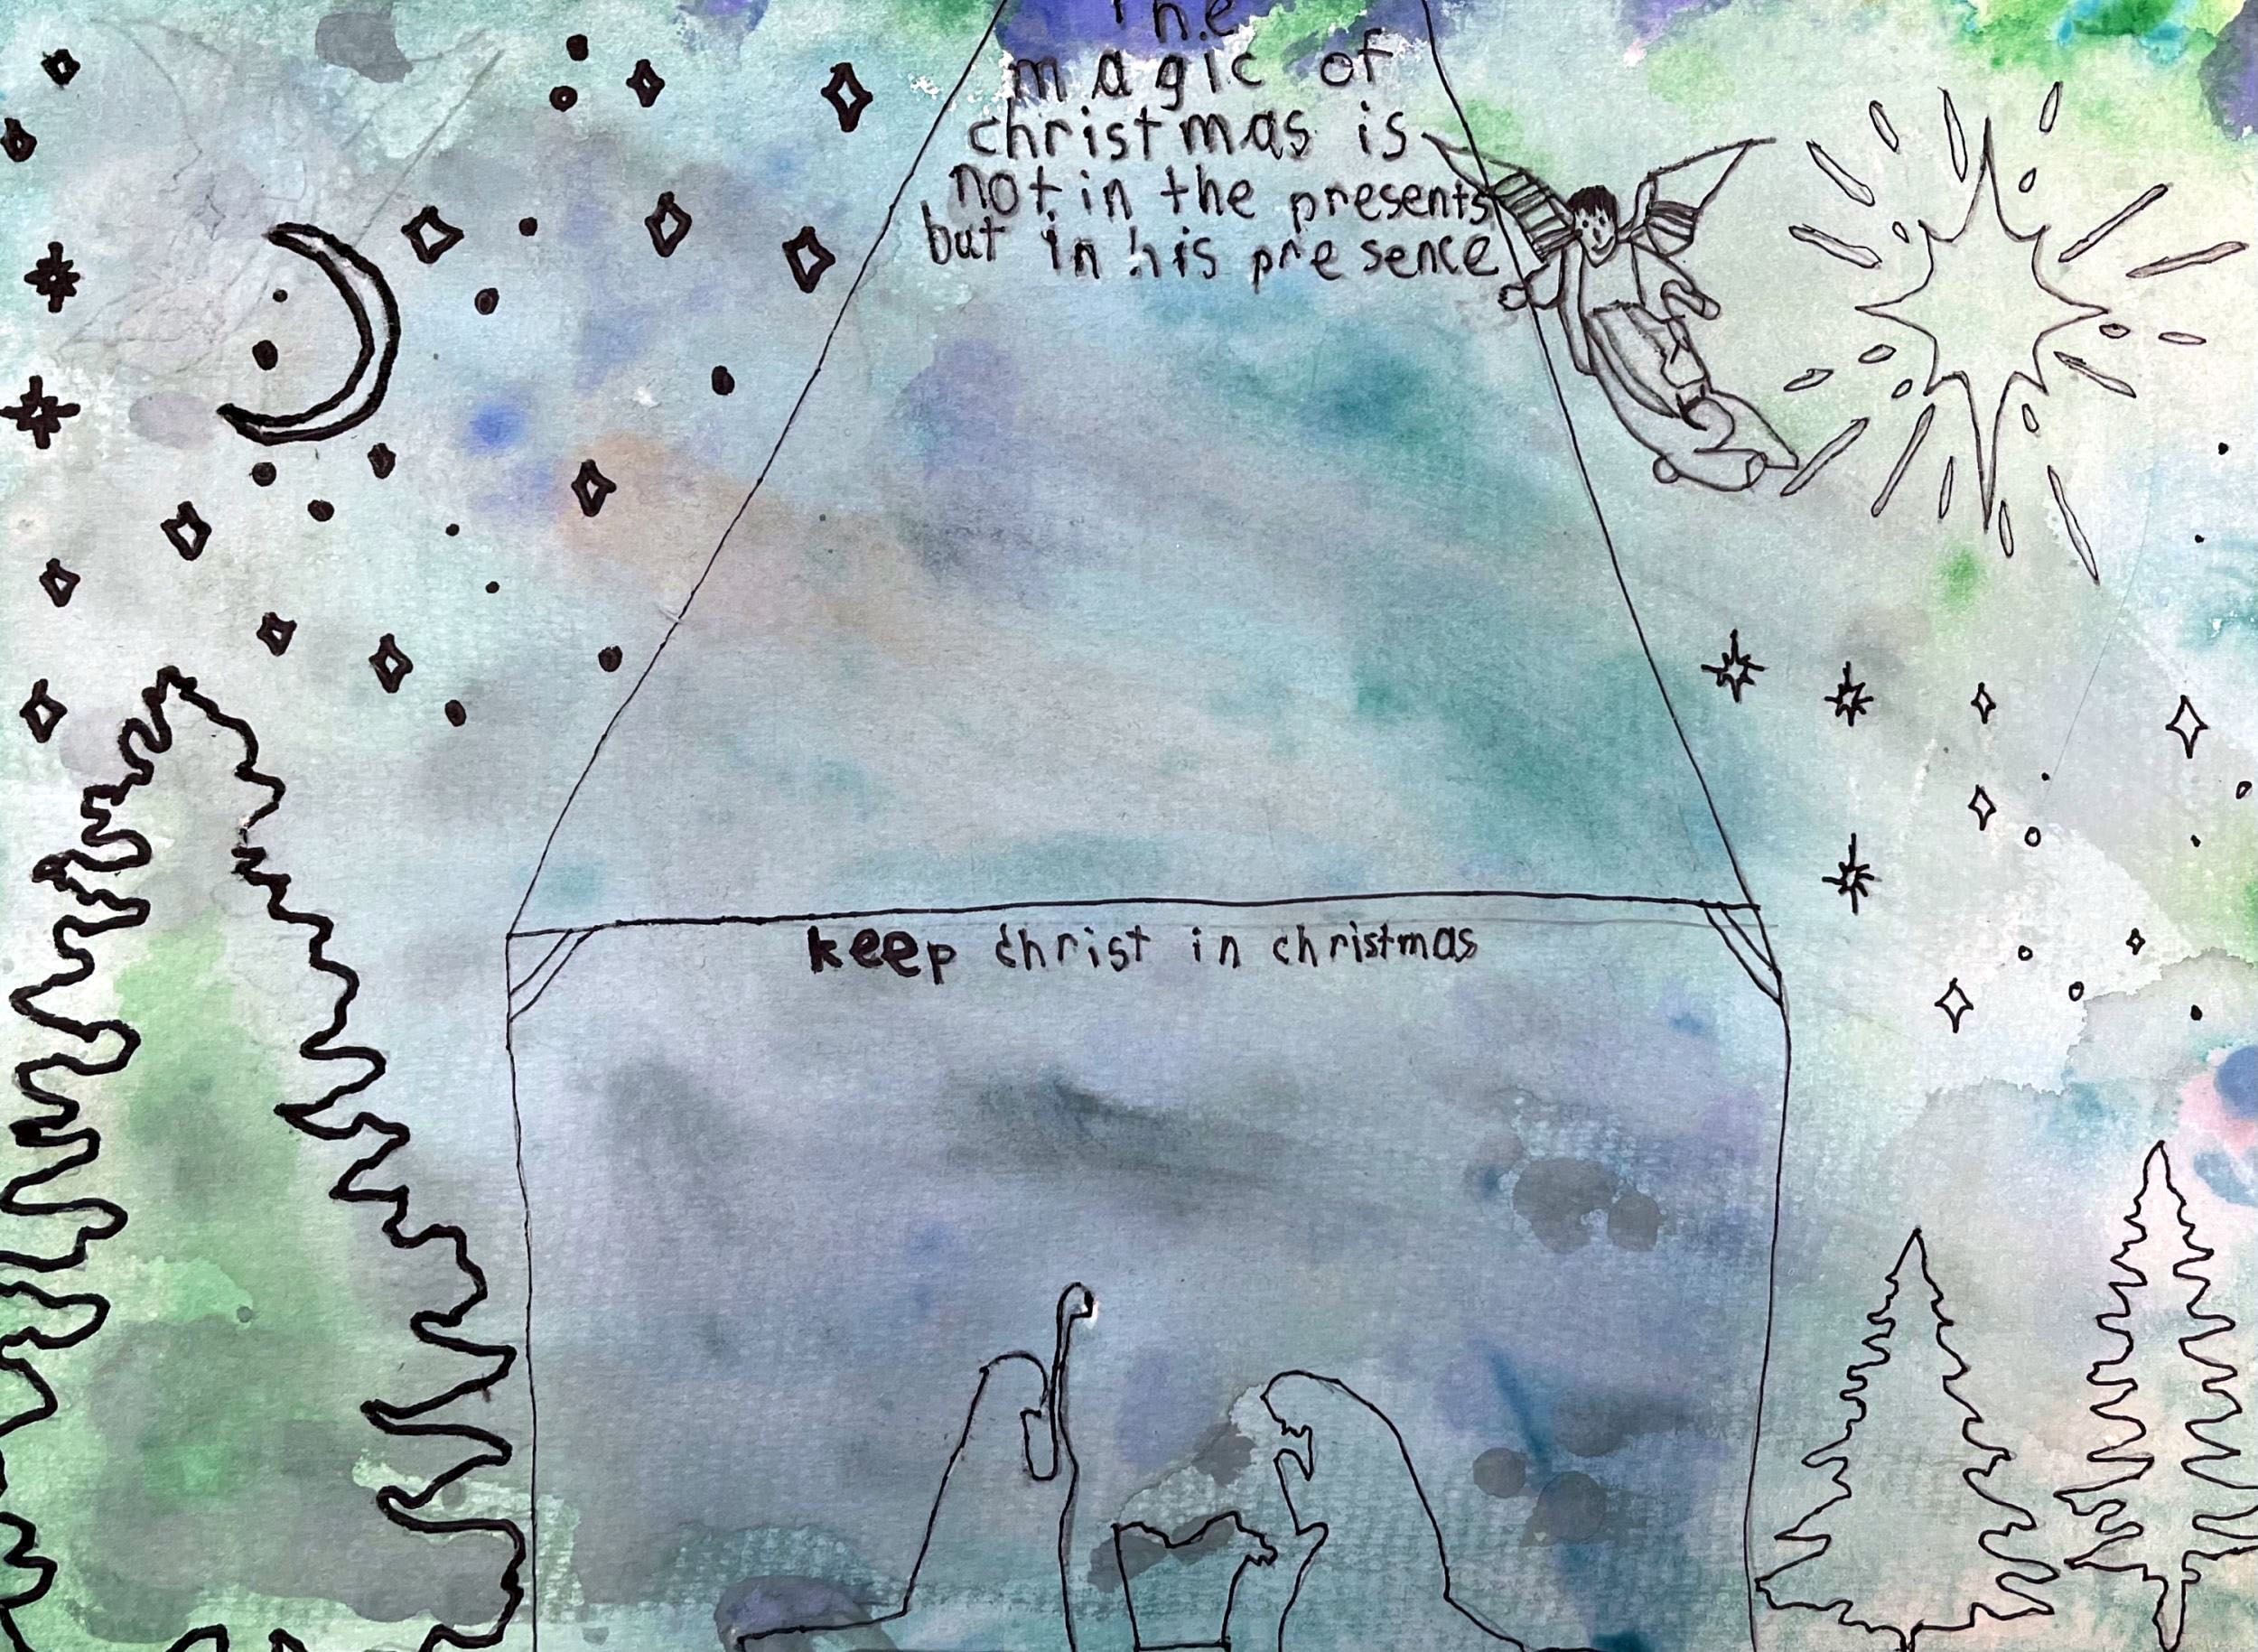 The
magic of
christmas is
not in the presents
but in his presence
keep christ in christmas